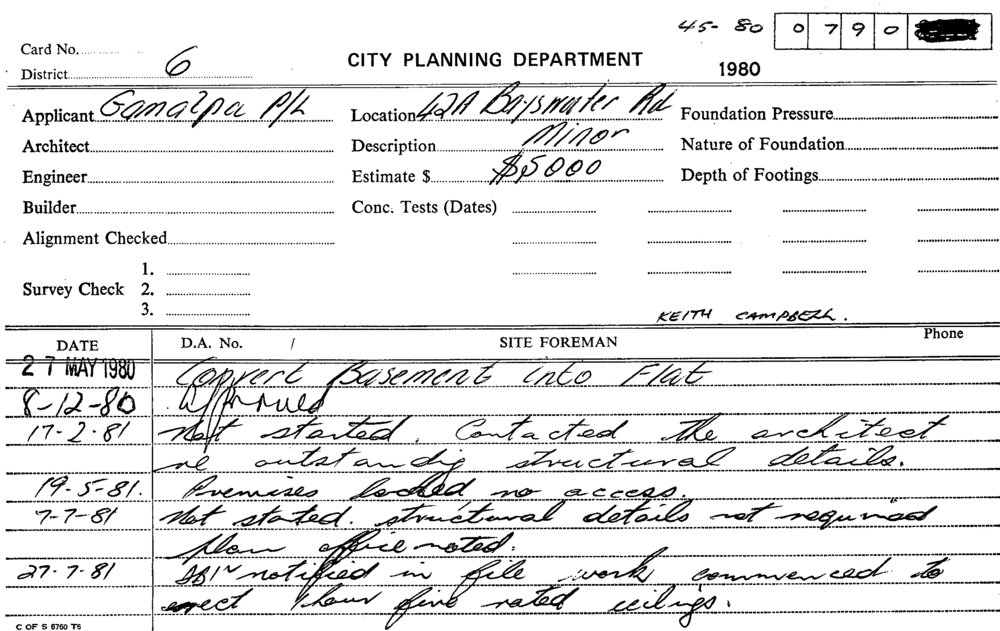 45-80 0790
Card No.
District 6
CITY PLANNING DEPARTMENT
1980
Applicant P/L
Location 42A Bayswater Rd
Foundation Pressure
Architect
Description Minor
Nature of Foundation
Engineer
Estimate $ $5000
Depth of Footings
Builder
Conc. Tests (Dates)
Alignment Checked
Survey Check
1.
2.
3.
KEITH CAMPBELL.
DATE
D.A. No. /
SITE FOREMAN
Phone
27 MAY 1980 Convert Basement into Flat
8-12-80 Approved
17-2-81 Not started. Contacted the architect
re outstandig structural details.
19-5-81. Premises locked no access.
7-7-81 Not stated. structural details not required
plan office noted.
27-7-81 notified in file work commenced to
erect 1 hour fire rated ceilings.
C OF S 6760 T6